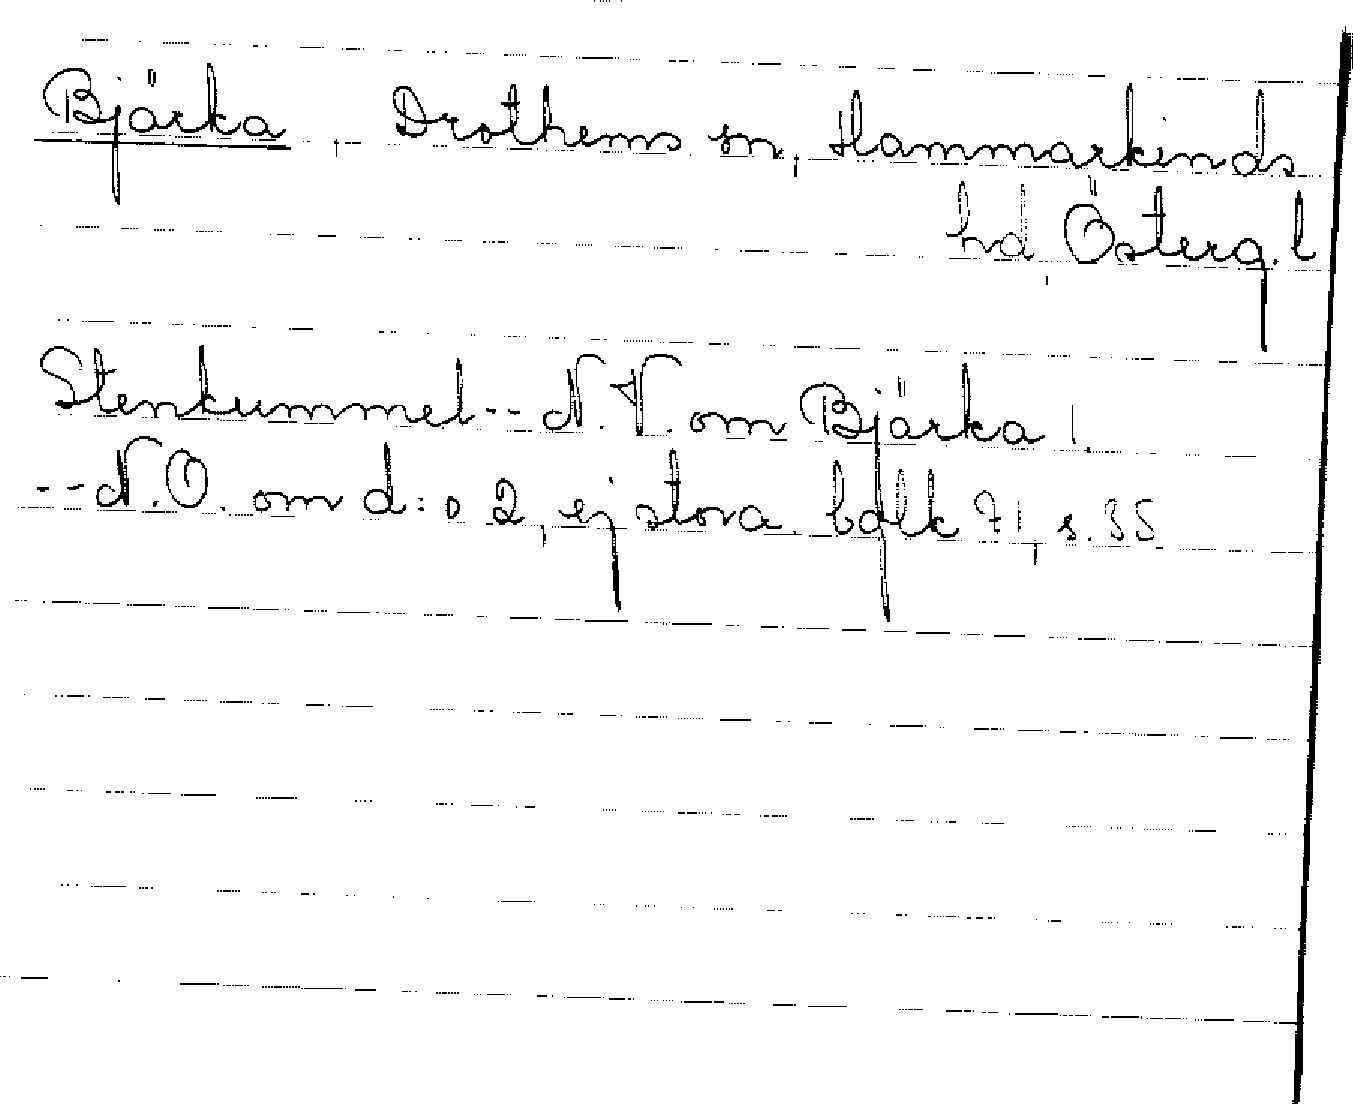 Bjärka, Drothems sn, Hammarkinds
hd, Österg. l
Stenkummel -- N.V. om Bjärka 1.
-- N.O. om d:o 2, ej stora. bdlk 71, s. 35